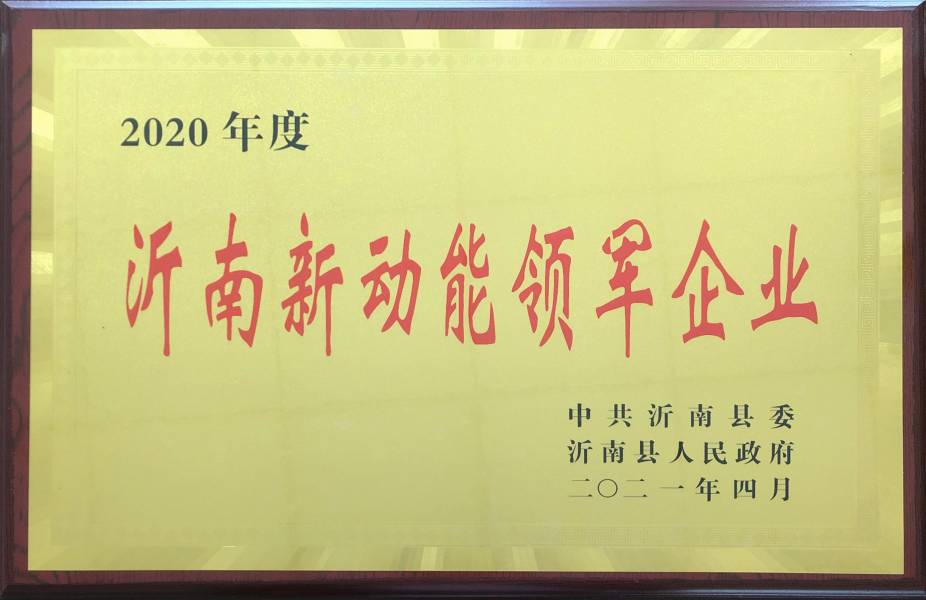 2020 年度
沂南新动能领军企业
中共沂南县委
沂南县人民政府
二〇二一年四月